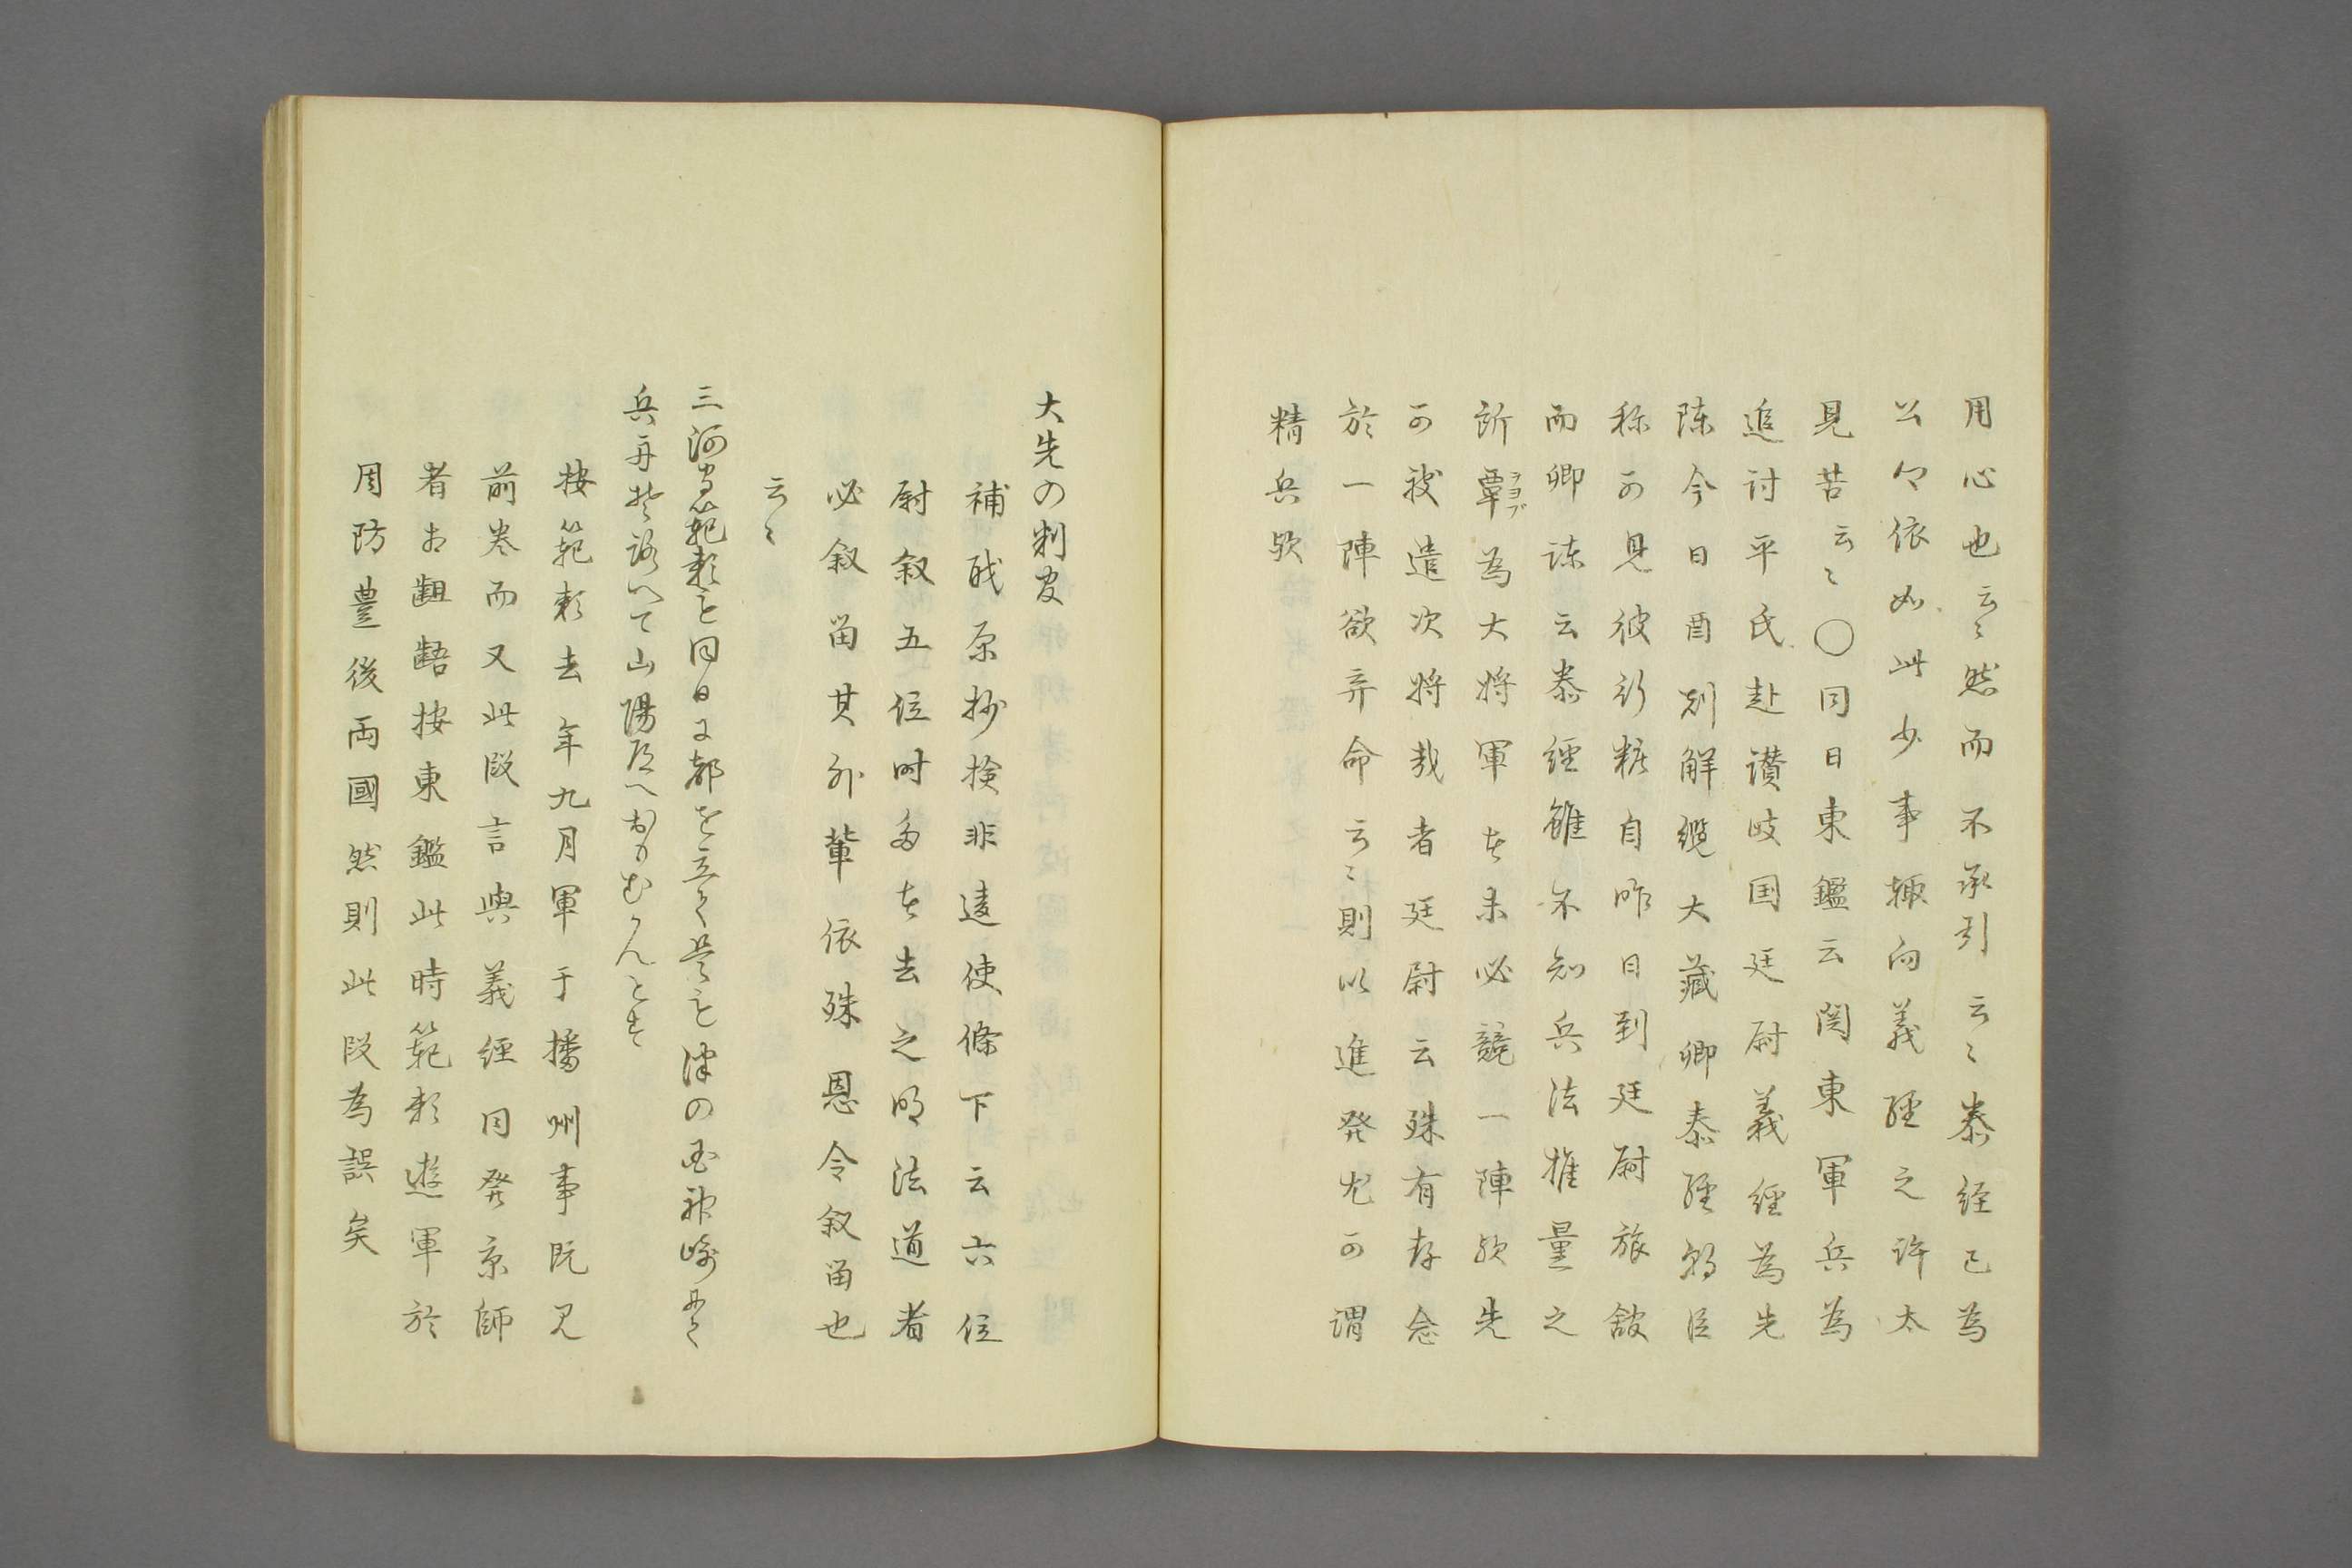 用心也云〻然而不承引云〻泰経已為
公卿依如此少事輙向義経之許太
見苦云〻〇同日東鑑云関東軍兵為
追討平氏赴讃岐国廷尉義経為先
陣今日酉刻解纜大蔵卿泰経朝臣
称可見彼行粧自昨日到廷尉旅舘
而卿諌云泰經雖不知兵法推量之
所覃ヲヨブ為大将軍者未必競一陣歟先
可被遣次将哉者廷尉云殊有存念
於一陣欲弃命云〻則以進発尤可謂
精兵歟
大先の判官
補職原抄検非違使條下云六位
尉叙五位時多者去之明法道者
必叙留其外輩依殊恩令叙留也
云〻
三河守範頼も同日に都を立て是も津の国神崎にて
兵舟そろへて山陽道へおもむかんとす
按範頼去年九月軍于播州事既見
前巻而又此段言與義経同発京師
者相齟齬按東鑑此時範頼遊軍於
周防豊後両國然則此段為誤矣